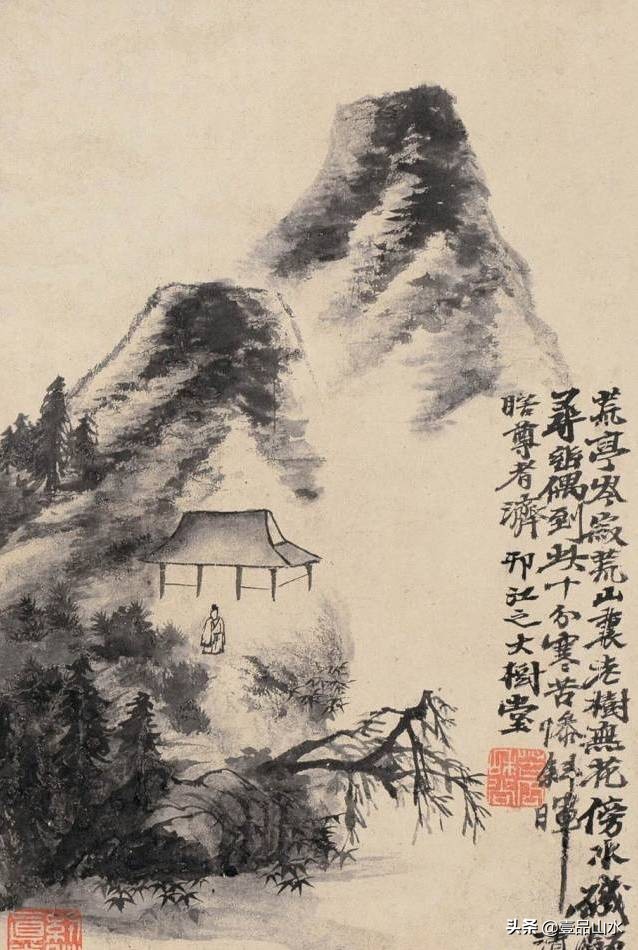 荒亭岑寂荒山裏老樹無花傍水磯
尋詩偶到此十分寒苦惨斜暉清
瞎尊者濟 邗江之大樹堂
头条 @壹品山水